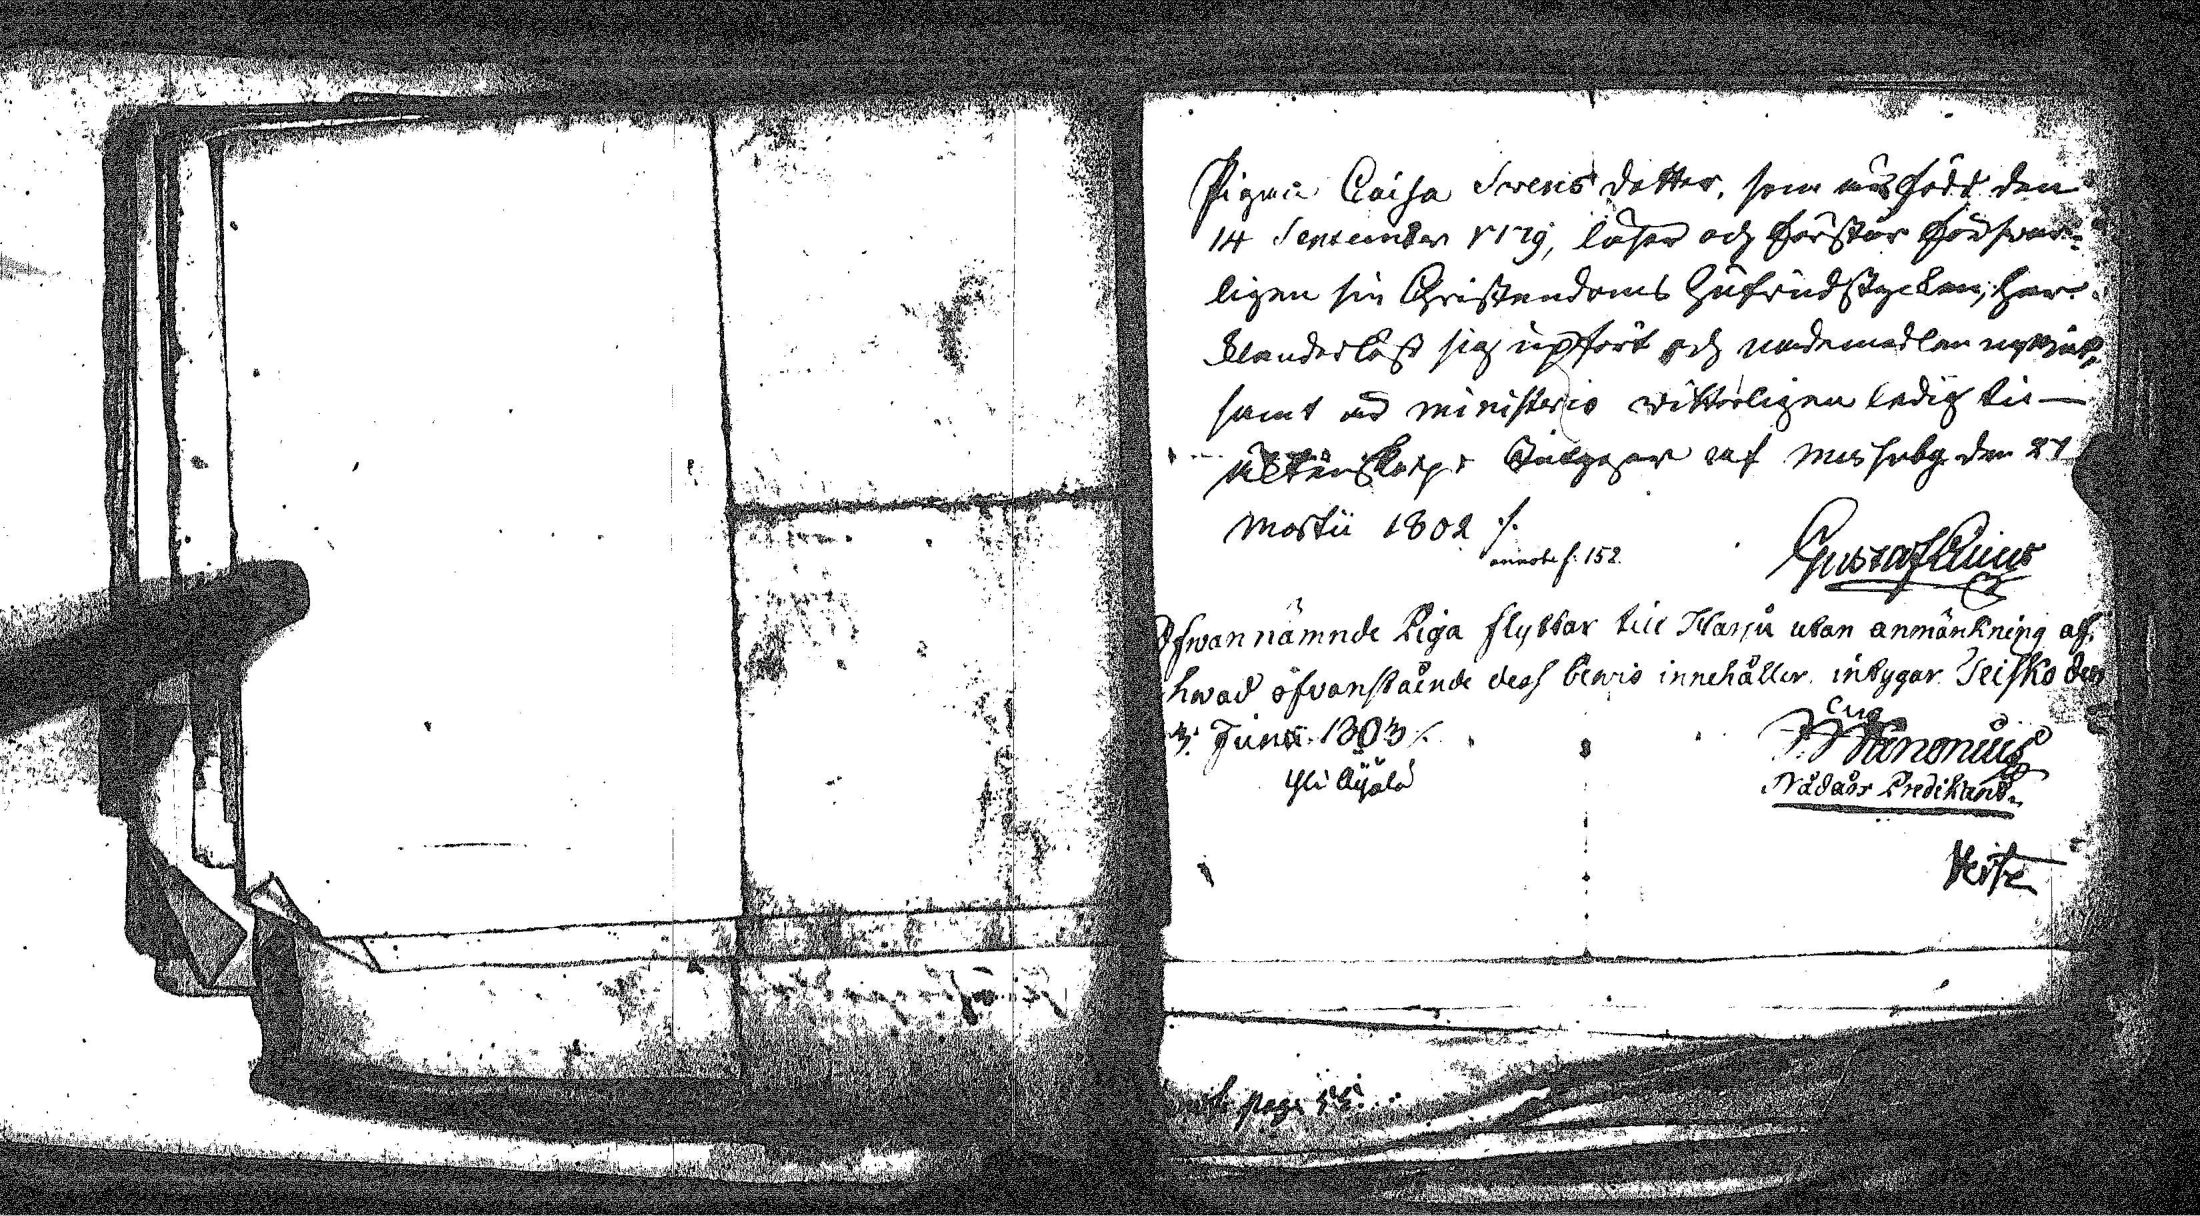 Pigan Caisa Svens dotter, som är född den
14 September 1779, läser och förstår försvar-
ligen sin Christendoms hufvudstycken, har
klanderlöst sig upfört och
samt ad ministerio vitterligen ledig till
äktenskap; intygar af Messuby den 27
Martii 1802 ./.
annote f. 152.
Gustaf
Ofwannämnde Piga flyttar till Harju utan anmänkning aff
hwad öfvanstående dess bewis innehåller. intygar Teisko den
3. Junii. 1803 ./.
Yli Äijälä
Nådaår Predikant.
page